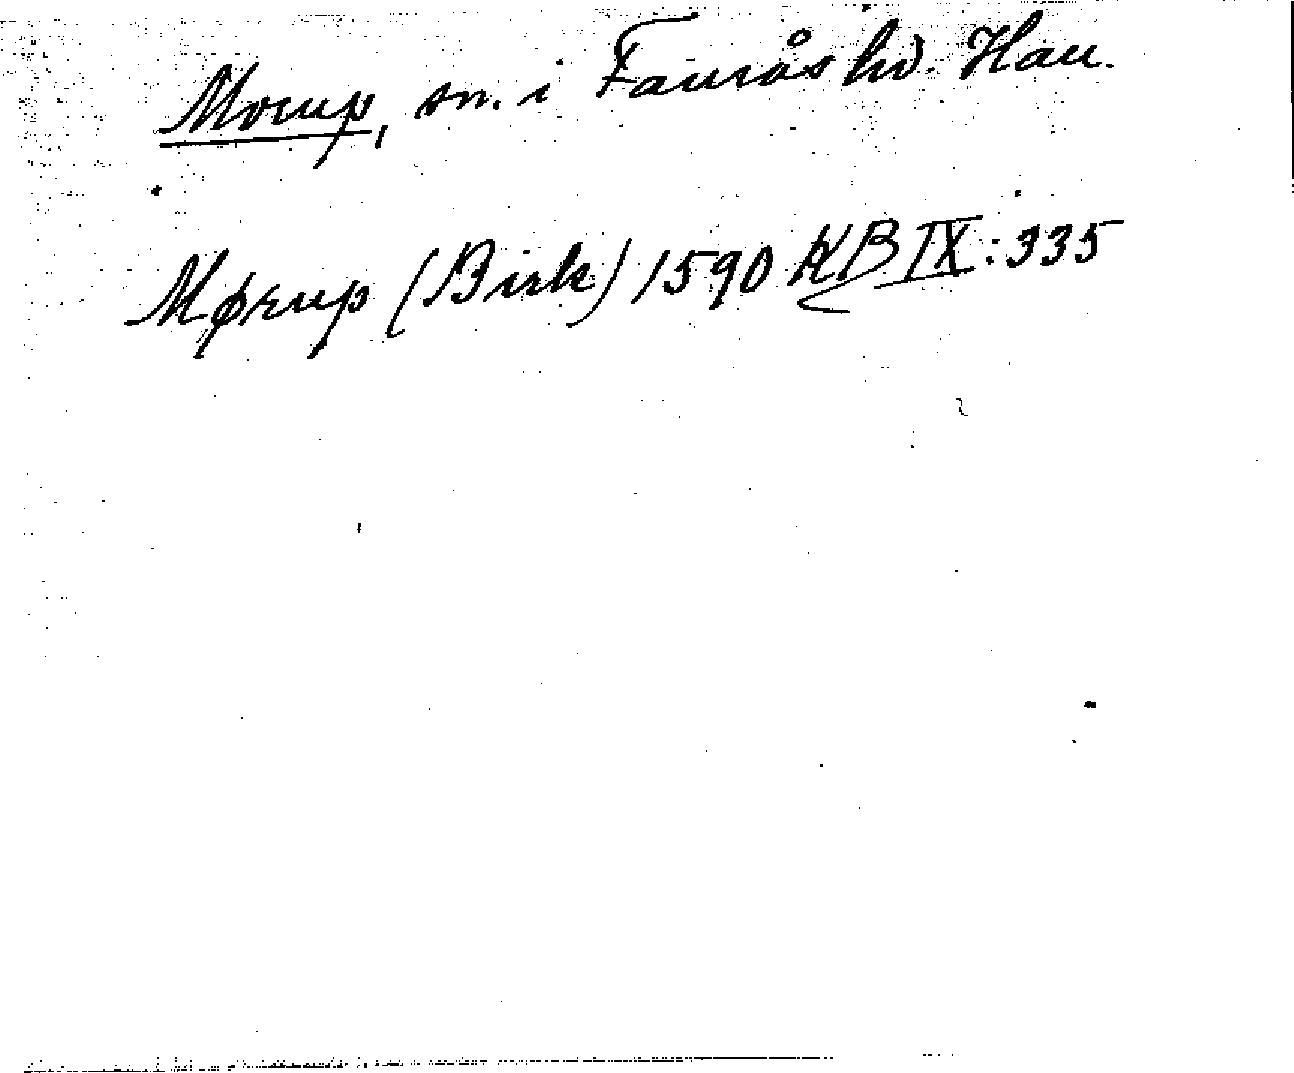 Morup, sn. i Faurås hd. Hall.
Mørup (Birk) 1590 KB IX: 335